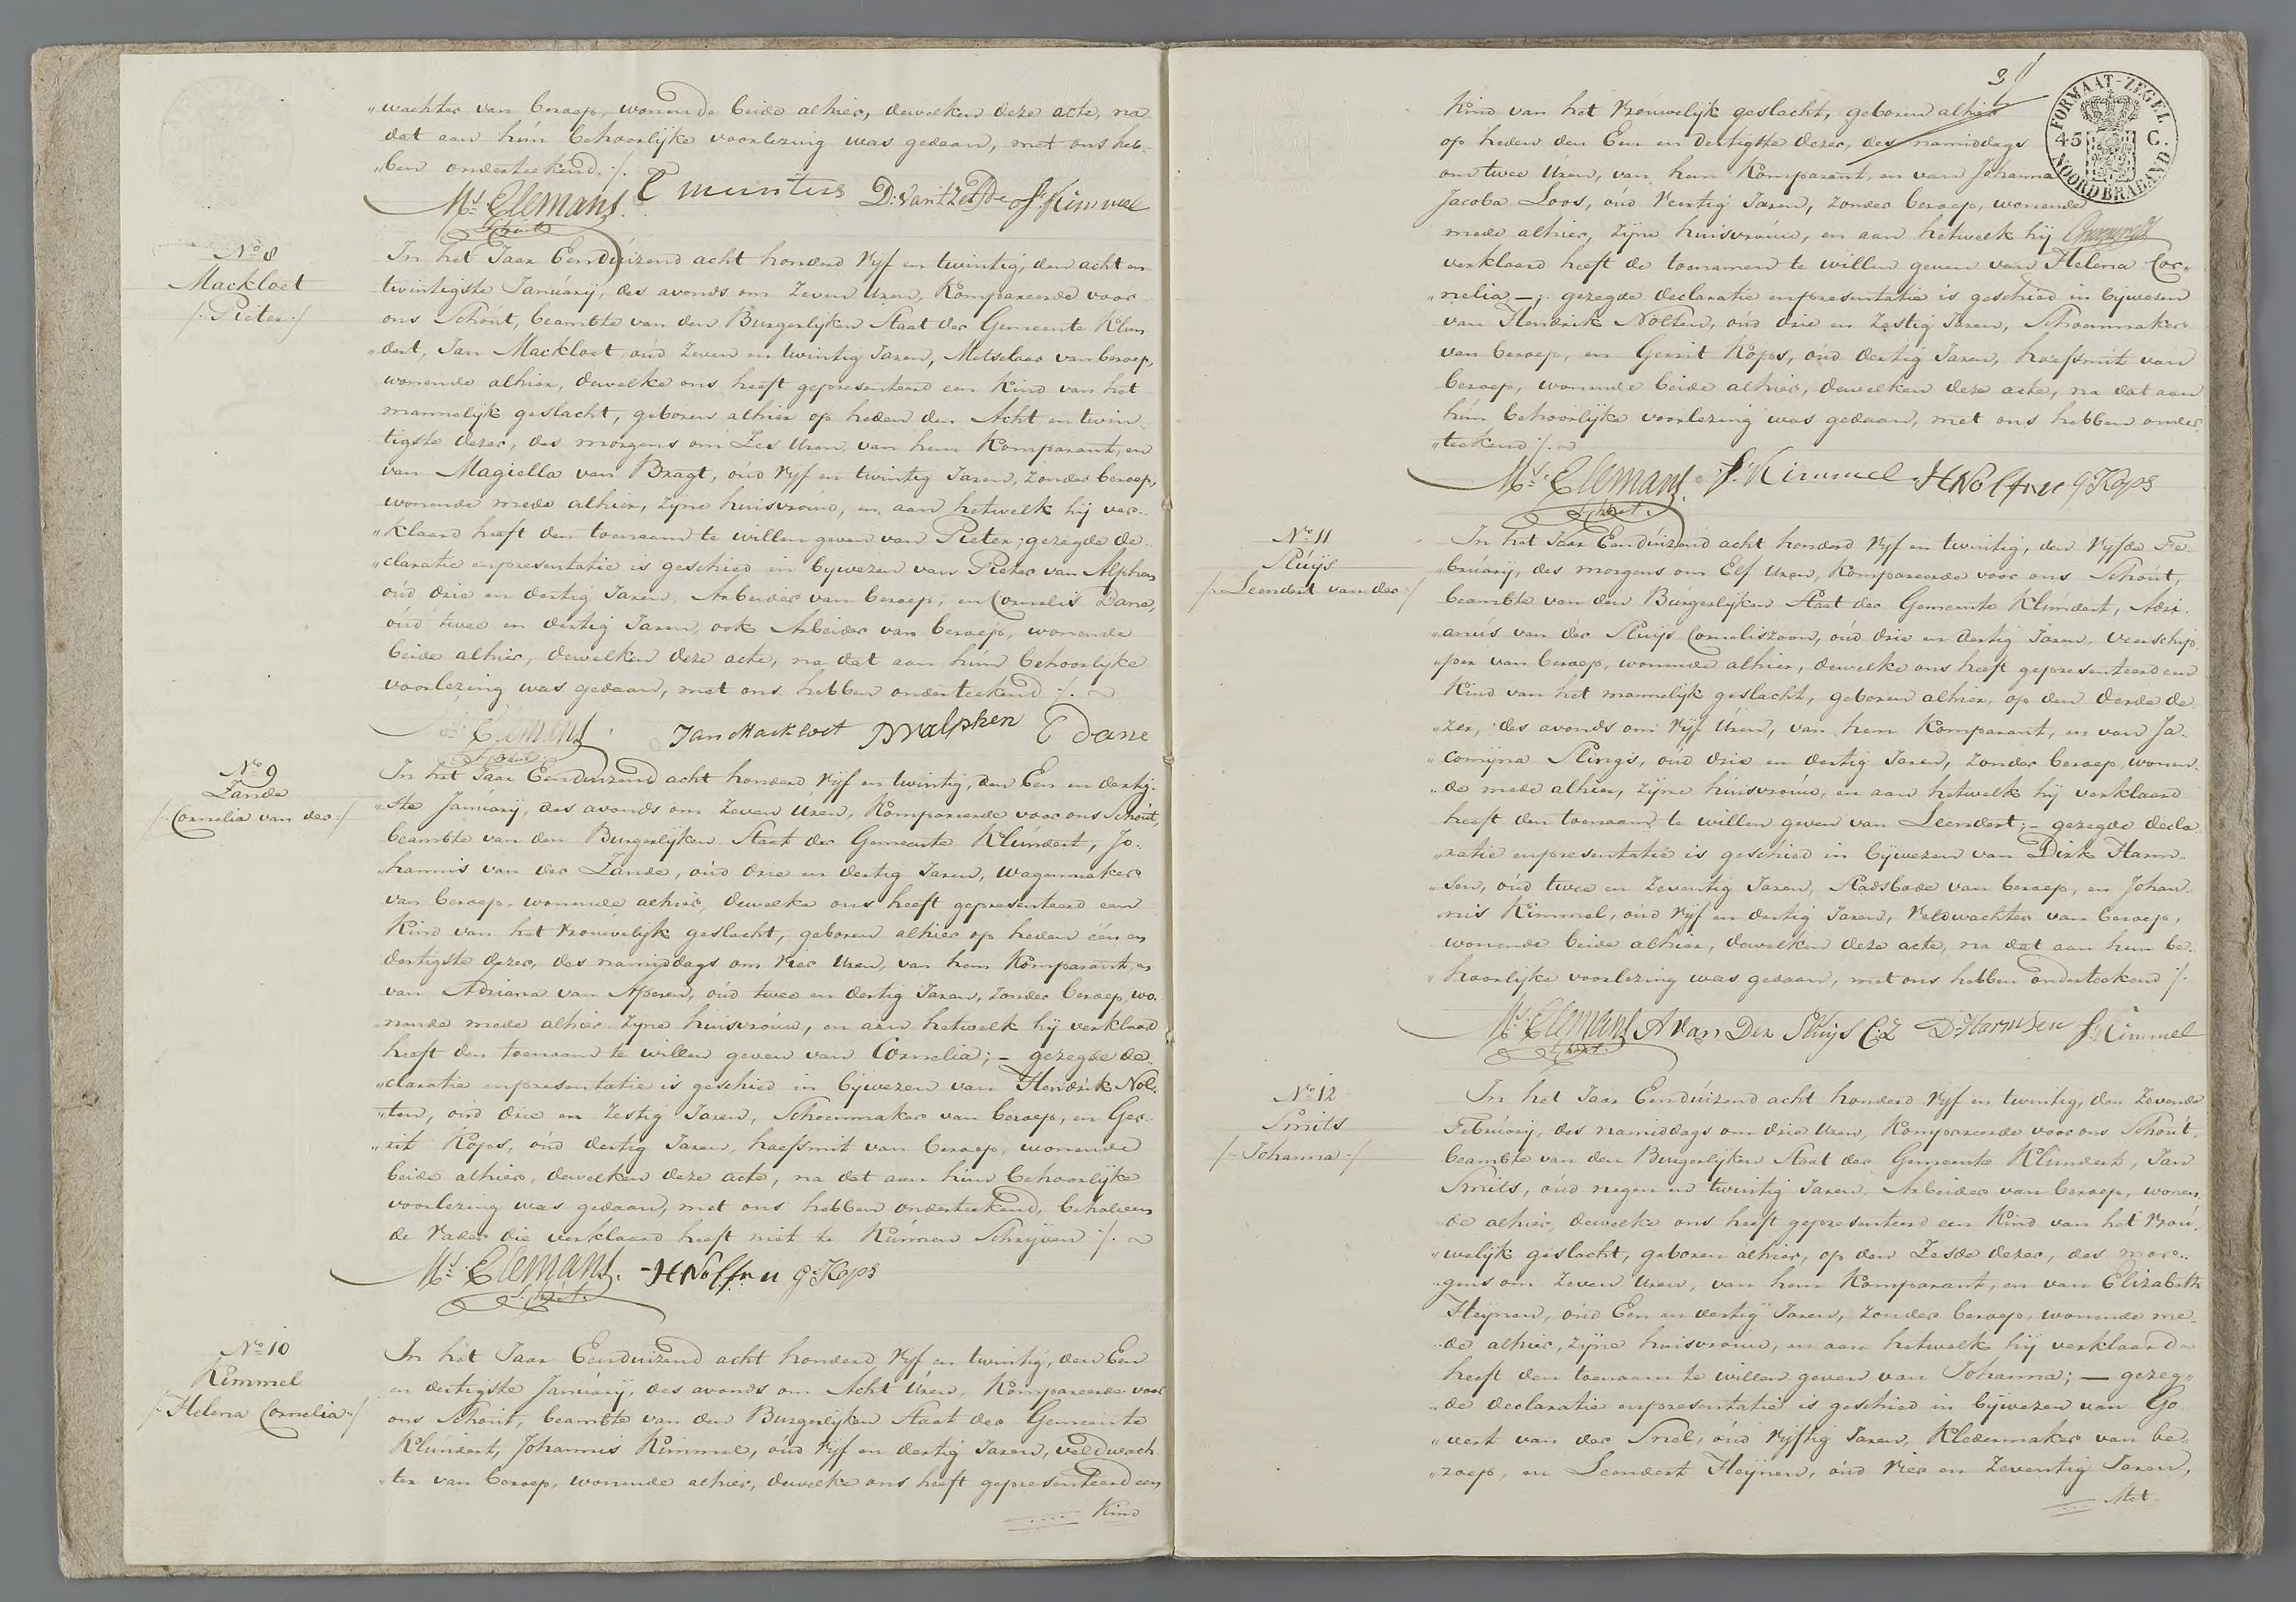 „wachter van beroep, wonende beide alhier, dewelken deze acte, na
dat aan hún behoorlijke voorlezing was gedaan, met ons heb„
„ben onderteekend ./.
Ms Clemans. C muntus D: van t Zelfde Js. Kimmel
Schout
No 8
Mackloet
/. Pieter ./
In het Jaar Eenduizend acht honderd Vijf en twintig, den acht en
twintigste Januárij, des avonds om Zeven Uren, Kompareerde voor
ons Schout, beambte van den Burgerlijken Staat der Gemeente Klun
„dert, Jan Mackloet, oúd Zeven en twintig Jaren, Metselaar van beroep,
wonende alhier, dewelke ons heeft gepresenteerd een Kind van het
mannelijk geslacht, geboren alhier op heden den Acht en twin„
tigste dezer, des morgens om Zes Uren, van hem Komparant, en
van Magiella van Bragt, oúd Vijf en twintig Jaren, Zonder beroep,
wonende mede alhier, Zijne huisvroúw, en aan hetwelk hij ver„
„klaard heeft den toenaam te willen geven van Pieter; gezegde de„
„claratie enpresentatie is geschied in bywezen van Pieter van Alphen
oúd drie en dertig Jaren, Arbeider van beroep, en Cornelis Dane,
oúd twee en dertig Jaren, ook Arbeider van beroep, wonende
beide alhier, dewelken deze acte, na dat aan hún behoorlijke
voorlezing was gedaan, met ons hebben onderteekend ./.
Ms Clemans. Jan Mackloet PvAlphen C Dane
Schout
No 9
Zande
/. Cornelia van der ./
In het Jaar Eenduizend acht honderd Vijf en twintig, den Een en dertig„
„ste Januárij, des avonds om Zeven Uren, Kompareerde voor ons Schoút,
beambte van den Burgerlijken Staat der Gemeente Klúndert, Jo„
„hannis van der Zande, oúd drie en dertig Jaren, Wagenmaker
van beroep, wonende alhier, dewelke ons heeft gepresenteerd een
Kind van het Vroúwelijk geslacht, geboren alhier op heden één en
dertigste dezer, des namiddags om Vier Uren, van hem Komparant, en
van Adriana van Aperen, oúd twee en dertig Jaren, Zonder beroep, wo„
nende mede alhier Zijne huisvroúw, en aan hetwelk hij verklaard
heeft den toenaam te willen geven van Cornelia; – gezegde de„
„claratie enpresentatie is geschied in bijwezen van Hendrik Nol„
„ten, oúd drie en Zestig Jaren, Schoenmaker van beroep, en Ger„
„rit Kops, oúd dertig Jaren, hoefsmit van beroep, wonende
beide alhier, dewelken deze acte, na dat aan hún behoorlijke
voorlezing was gedaan, met ons hebben onderteekend, behalven
de Vader die verklaard heeft niet te Kúnnen Schrijven ./.
Ms Clemans. H Nolten G: Kops
Schout
No 10
Kimmel
/. Helena Cornelia ./
In het Jaar Eenduizend acht honderd Vijf en twintig, den Een
en dertigste Januárij, des avonds om Acht Uren, Kompareerde voor
ons Schout, beambte van den Burgerlijken Staat der Gemeente
Klúndert, Johannis Kimmel, oúd Vijf en dertig Jaren, veldwach„
„ter van beroep, wonende alhier, dewelke ons heeft gepresenteerd een
Kind
3
FORMAAT-ZEGEL
45 C.
NOORDBRABAND
Kind van het Vroúwelijk geslacht, geboren alhier
op heden den Een en dertigste dezer, des namiddags
om twee Uren, van hem Komparant, en van Johanna
Jacoba Loos, oúd Veertig Jaren, Zonder beroep, wonende
mede alhier, Zijne huisvroúw, en aan hetwelk hij
verklaard heeft de toenamen te willen geven van Helena Cor„
„nelia –; gezegde declaratie enpresentatie is geschied in bijwezen
van Hendrik Nolten, oúd drie en Zestig Jaren, Schoenmaker
van beroep, en Gerrit Kops, oúd dertig Jaren, hoefsmit van
beroep, wonende beide alhier, dewelken deze acte, na dat aan
hún behoorlijke voorlezing was gedaan, met ons hebben onder„
„teekend ./.
Ms Clemans. Js. Kimmel H Nolten G Kops
Schout.
No 11
Sluijs
/. Leendert van der ./
In het Jaar Eenduizend acht honderd Vijf en twintig, den Vijfde Fe„
„bruárij, des morgens om Elf Uren, Kompareerde voor ons Schoút,
beambte van den Burgerlijken Staat der Gemeente Klúndert, Adri„
„anús van der Sluijs Corneliszoon, oúd drie en dertig Jaren, Veerschip„
„per van beroep, wonende alhier, dewelke ons heeft gepresenteerd een
Kind van het mannelijk geslacht, geboren alhier, op den derde de„
„zer, des avonds om Vijf Uren, van hem Komparant, en van Ja„
„comijna Slings, oud drie en dertig Jaren, Zonder beroep, wonen„
„de mede alhier, Zijne húisvroúw, en aan hetwelk hij verklaard
heeft den toenaam te willen geven van Leendert; – gezegde decla„
„ratie enpresentatie is geschied in bijwezen van Dirk Harm„
„sen, oúd twee en Zeventig Jaren, Stadsbode van beroep, en Johan„
„nis Kimmel, oúd Vijf en dertig Jaren, Veldwachter van beroep,
wonende beide alhier, dewelken deze acte, na dat aan hun be„
„hoorlijke voorlezing was gedaan, met ons hebben onderteekend ./.
Ms Clemans A van Der Sluijs C:Z D: Harmsen Js. Kimmel
Schout.
No 12
Smits
/. Johanna ./
In het Jaar Eendúizend acht honderd Vijf en twintig, den Zevende
Februárij, des namiddags om drie Uren, Kompareerde voor ons Schoút,
beambte van den Burgerlijken Staat der Gemeente Klundert, Jan
Smits, oúd negen en twintig Jaren, Arbeider van beroep, wonen„
de alhier, dewelke ons heeft gepresenteerd een Kind van het Vroú„
„welijk geslacht, geboren alhier, op den Zesde dezer, des mor„
„gens om Zeven Uren, van hem Komparant, en van Elizabeth
Heijnen, oúd Een en dertig Jaren, Zonder beroep, wonende me„
„de alhier, Zijne huisvroúw, en aan hetwelk hij verklaard
heeft den toenaam te willen geven van Johanna; – gezeg„
„de declaratie enpresentatie is geschied in bijwezen van Go„
„vert van der Snel, oúd Vijftig Jaren, Kledermaker van be„
„roep, en Leendert Heijnen, oúd Vier en Zeventig Jaren,
Met